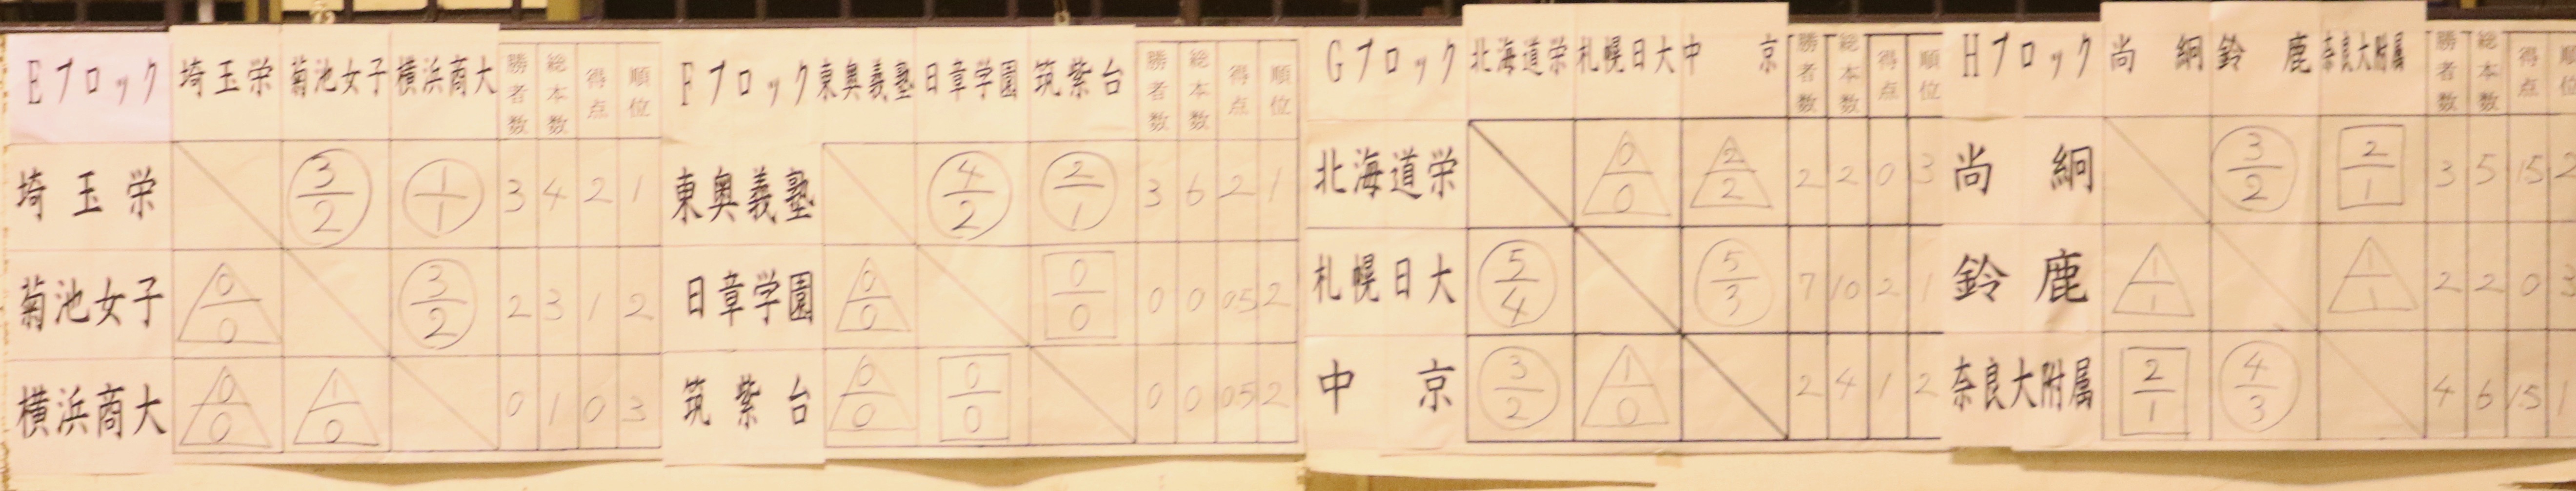 Eブロック 埼玉栄 菊池女子 横浜商大 勝者数 総本数 得点 順位
埼玉栄 3/2 1/1 3 4 2 1
菊池女子 0/0 3/2 2 3 1 2
横浜商大 0/0 1/0 0 1 0 3
Fブロック 東奥義塾 日章学園 筑紫台 勝者数 総本数 得点 順位
東奥義塾 4/2 2/1 3 6 2 1
日章学園 0/0 0/0 0 0 05 2
筑紫台 0/0 0/0 0 0 05 2
Gブロック 北海道栄 札幌日大 中京 勝者数 総本数 得点 順位
北海道栄 0/0 2/2 2 2 0 3
札幌日大 5/4 5/3 7 10 2 1
中京 3/2 1/0 2 4 1 2
Hブロック 尚絅 鈴鹿 奈良大附属 勝者数 総本数 得点 順位
尚絅 3/2 2/1 3 5 15 2
鈴鹿 1/1 1/1 2 2 0 3
奈良大附属 2/1 4/3 4 6 1.5 1